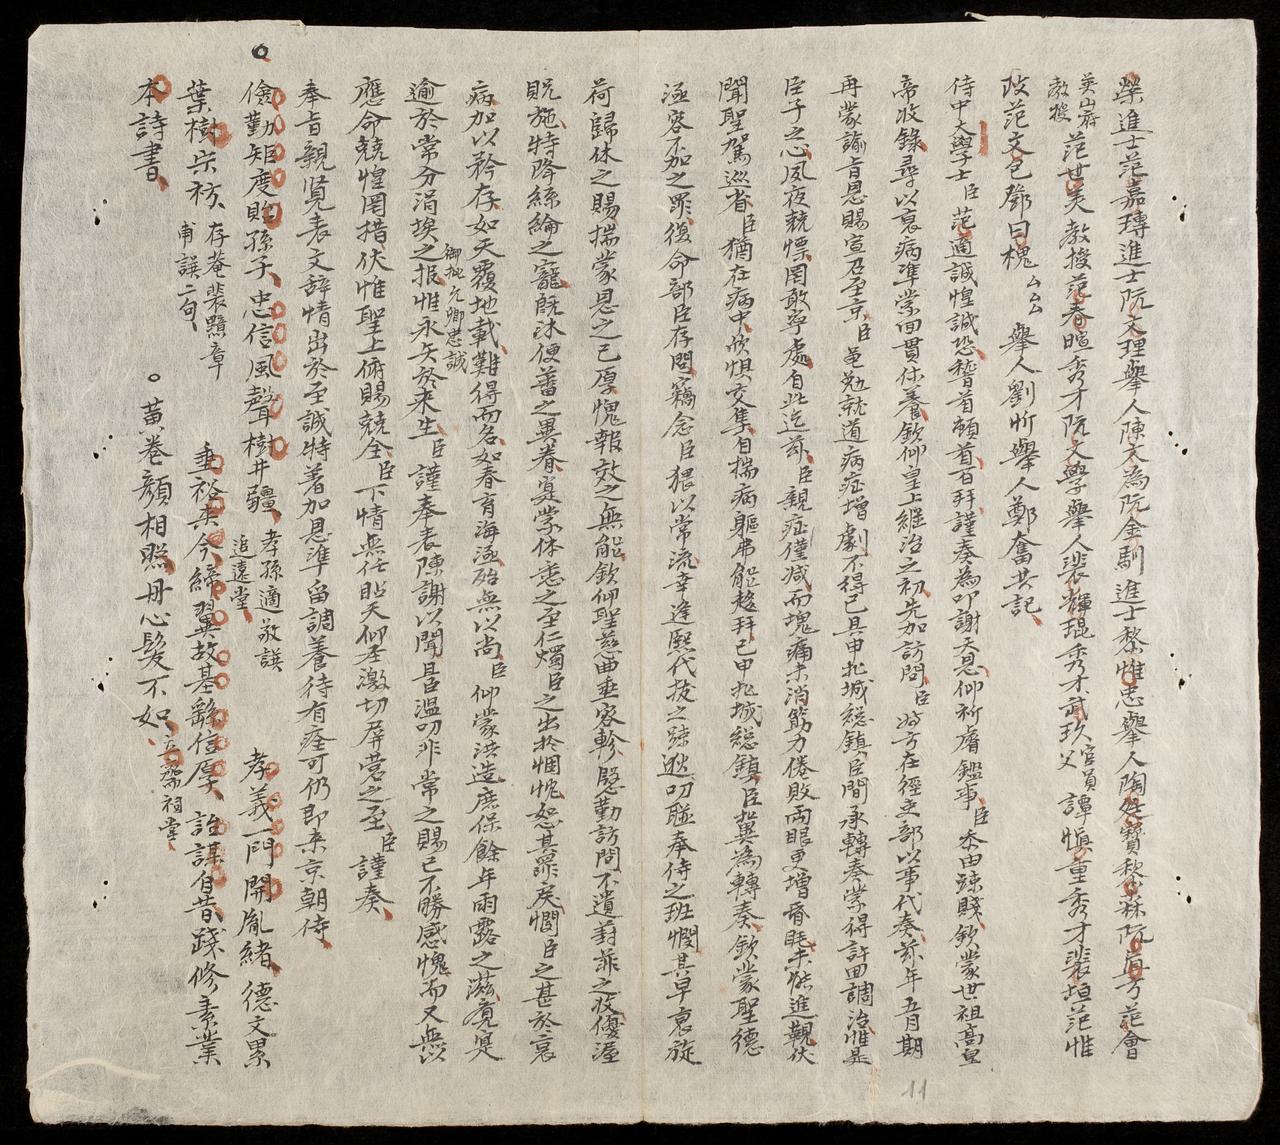 榮進士范嘉瑼進士阮文理舉人陳文為阮金馴進士黎惟忠舉人陶廷寶秋霖阮貞方范會
英崙教授范世美教授范春暄秀才阮文學舉人裴輝琨秀才武玖父官員譚慎重秀才裴垣范惟
改范文巴鄧曰槐ムムム舉人劉忻舉人鄭奮共記
侍中大學士臣范適誠惶誠恐稽首頓首百拜謹奏為叩謝天恩仰祈膚鑑事臣忝由疎賤欽蒙世祖高皇
帝收錄尋以衰病準掌回貫休養欽仰皇上繼治之初先加訪問臣時方在徑吏部以事代奏茲年五月期
再蒙諭旨恩賜宣召至京臣黽勉就道病症增劇不得已具申北城総鎮臣間承轉奏掌得許回調治惟是
臣子之心夙夜兢慄罔敢寧處自此迄茲臣親症僅減而塊痛未消筋力倦敗両眼更增昏眊未能進觀伏
聞聖駕巡省臣猶在病中欣惧交集自揣病軀弗能趨拜已申北城総鎮臣冀為轉奏欽蒙聖德
涵容不加之罪復命部臣存問竊念臣猥以常流幸逢熙代技之疎逖叨聯奉侍之班憫其早衰旋
荷歸休之賜揣蒙恩之已厚愧報效之無能欽仰聖慈曲垂容軫慇勤訪問不遺葑菲之收優渥
貺施特降絲綸之寵既沐便蕃之異眷寔蒙体悉之至仁燭臣之出於悃忱恕其罪戾憫臣之甚於衰
病加以矜存如天覆地載難得而名如春育海涵殆無以尚臣仰蒙洪造庶保餘年雨露之滋竟寔
逾於常分涓埃之报惟永矢於来生臣謹奉表陳謝以聞
御批允卿悲誠
臣温叨非常之賜已不勝感愧而又無以
應命兢惶罔措伏惟聖上俯賜兢全臣下情無任貼天仰圣激切屏营之至臣謹奏
奉旨親覽表文辞情出於至誠特著加恩準留調養待有痊可仍即来京朝侍
儉勤矩度貽孫子忠信風聲樹井疆孝孫適敬譔追遠堂
孝義一門開胤緒德文累
葉樹宗祊存菴裴顯章甫譔二句
垂裕来今締翼故基繇信厚詒謀自昔踐修素業
本詩書
黄巻顏相照丹心髮不如立齋祠堂
11